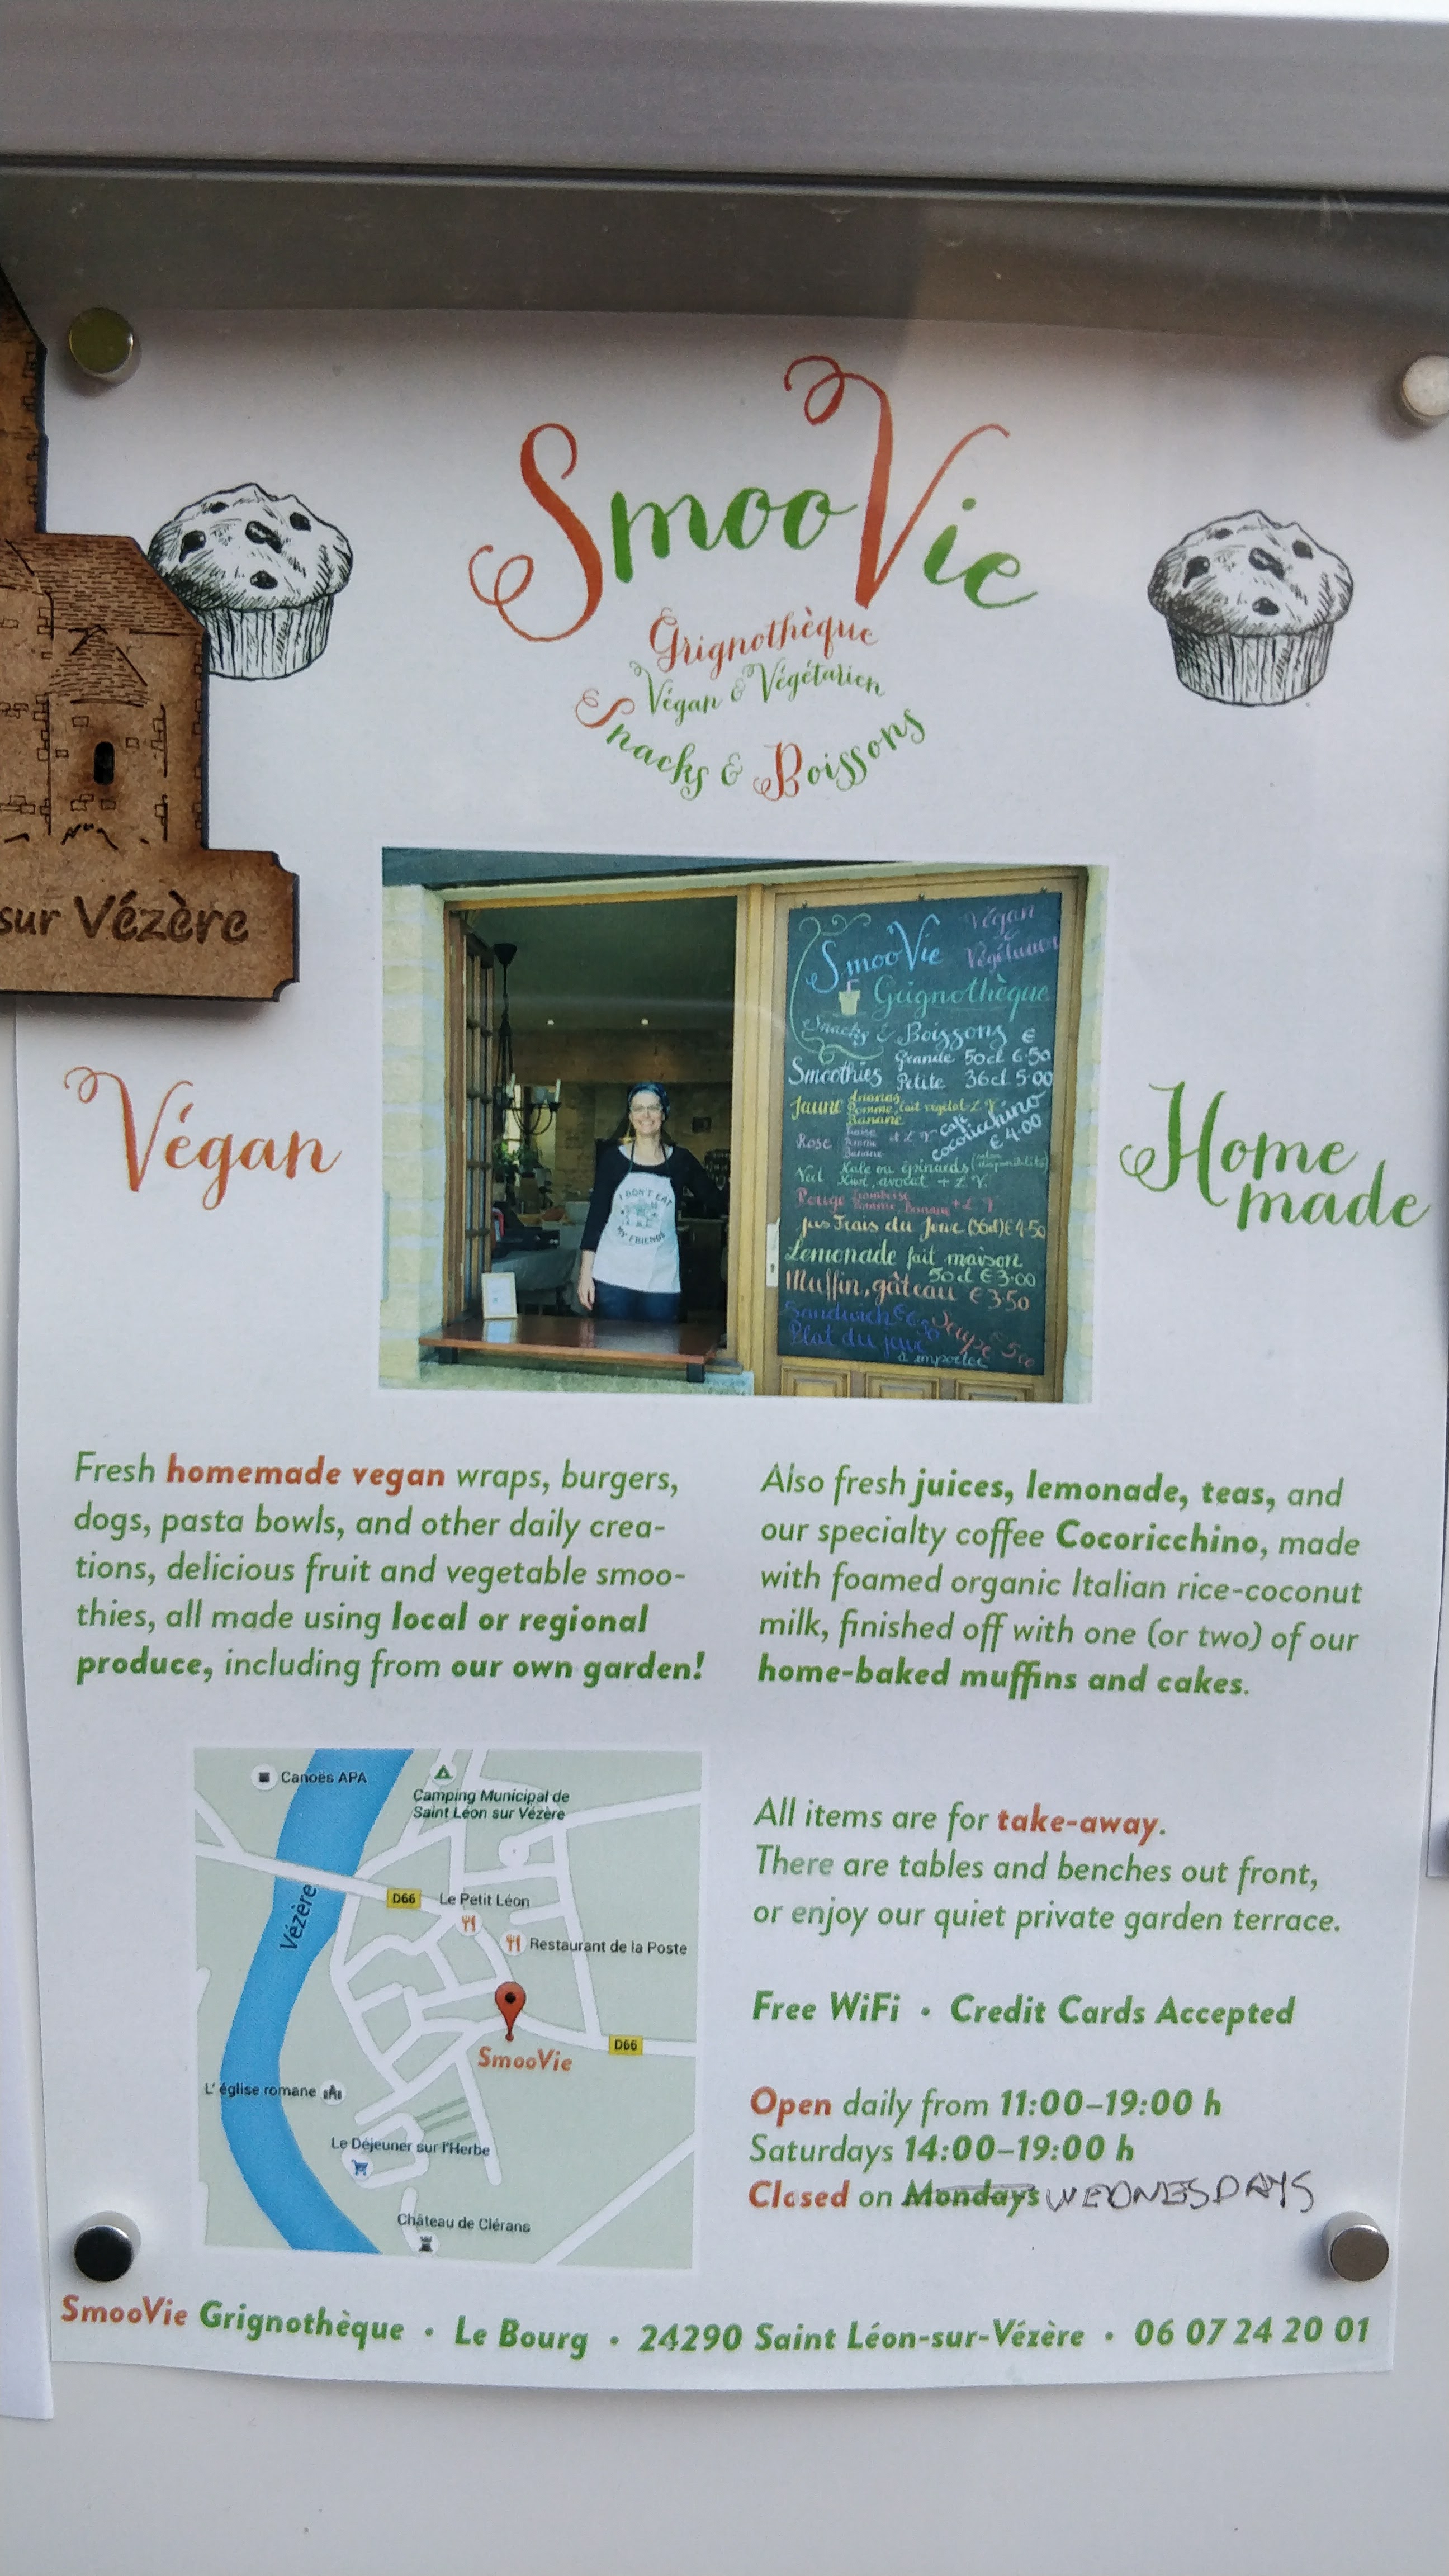 SmooVie
Grignothèque
Végan & Végétarien
Snacks & Boissons
sur Vézère
Végan
Home
made
SmooVie
Végan
Grignothèque
Snacks & Boissons €
Smoothies Grande 50cl 6.50
Petite 36cl 5.00
Jaune Ananas
Pomme, lait végétal
Banane
café
cocoricchino
€4.00
Rose
Banane
Kale ou épinards
Kiwi, avocat
Rouge Framboise
Pomme, Banane
Jus Frais du Jour (36cl) € 4.50
Lemonade fait maison
50cl € 3.00
Muffin, gâteau € 3.50
Sandwich
Plat du jour
à emporter
I DON'T EAT
MY FRIENDS
Fresh homemade vegan wraps, burgers,
dogs, pasta bowls, and other daily crea-
tions, delicious fruit and vegetable smoo-
thies, all made using local or regional
produce, including from our own garden!
Also fresh juices, lemonade, teas, and
our specialty coffee Cocoricchino, made
with foamed organic Italian rice-coconut
milk, finished off with one (or two) of our
home-baked muffins and cakes.
Canoës APA
Camping Municipal de
Saint Léon sur Vézère
Vézère
D66
Le Petit Léon
Restaurant de la Poste
D66
SmooVie
L' église romane
Le Déjeuner sur l'Herbe
Château de Clérans
All items are for take-away.
There are tables and benches out front,
or enjoy our quiet private garden terrace.
Free WiFi • Credit Cards Accepted
Open daily from 11:00–19:00 h
Saturdays 14:00–19:00 h
Closed on Mondays WEDNESDAYS
SmooVie Grignothèque • Le Bourg • 24290 Saint Léon-sur-Vézère • 06 07 24 20 01